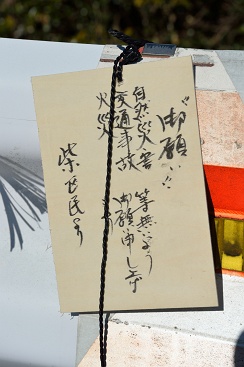 〃御願〃
自然災害
交通事故
火災
等無いよう
御願い申し上げ
ます